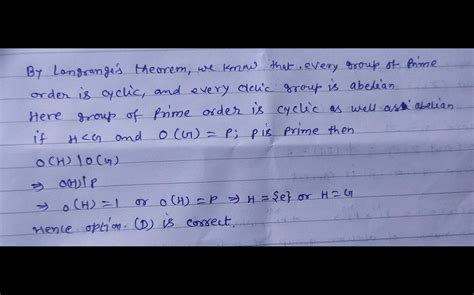 By Langrange's theorem, we know that, every group of Prime
order is cyclic, and every cyclic group is abelian
Here group of Prime order is cyclic as well as abelian
if H<G and O(G) = P; P is Prime then
O(H) | O(G)
⇒ O(H) | P
⇒ O(H) = 1 or O(H) = P ⇒ H = {e} or H = G
Hence option. (D) is correct.